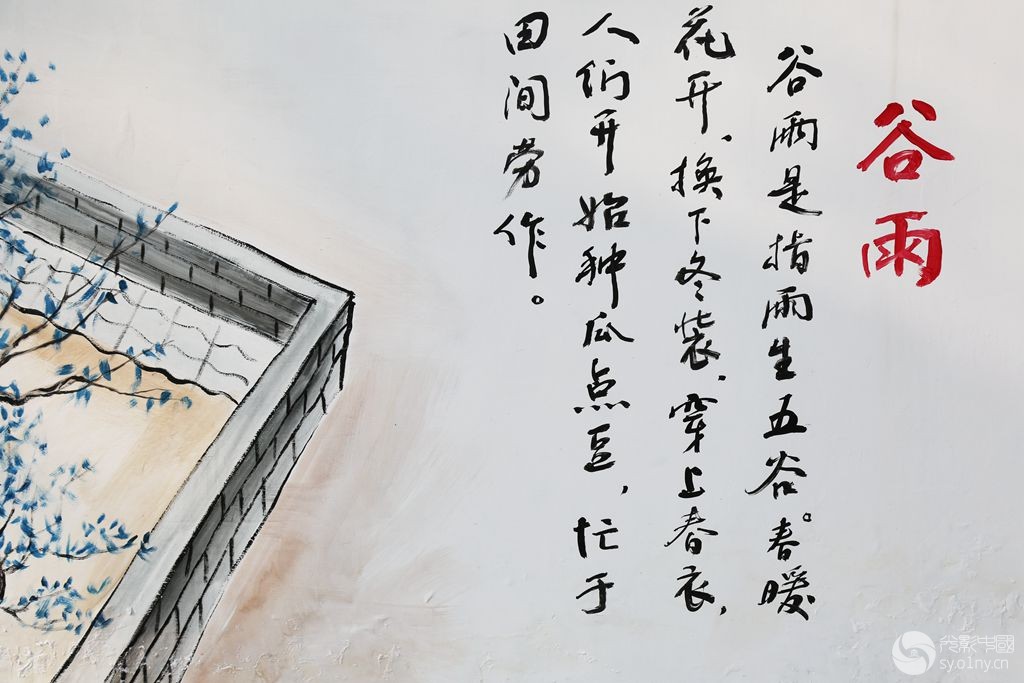 谷雨
谷雨是指雨生五谷。春暖
花开、换下冬装、穿上春衣，
人们开始种瓜点豆，忙于
田间劳作。
光影中國
sy.o1ny.cn